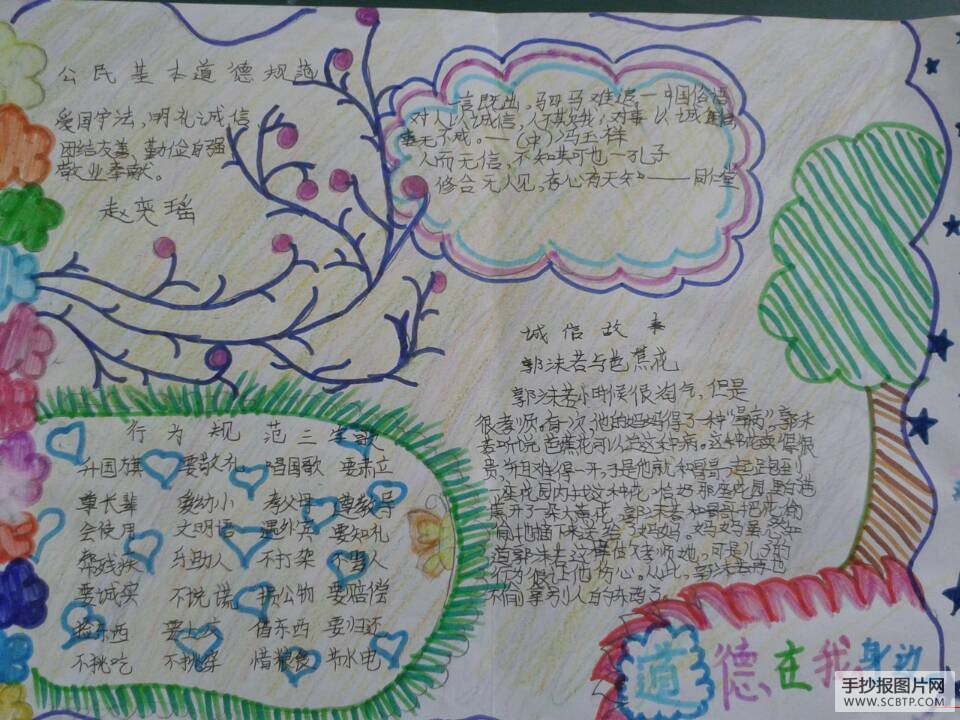 公民基本道德规范
爱国守法,明礼诚信
团结友善,勤俭自强
敬业奉献。
赵奕瑶
一言既出,驷马难追。一中国俗语
对人以诚信,人不欺我;对事以诚信,
事无不成。——(中)冯玉祥
人而无信,不知其可也一孔子
修合无人见,存心有天知——同仁堂
诚信故事
郭沫若与芭蕉花
郭沫若小时候很淘气,但是
很孝顺。有一次,他的妈妈得了一种“晕病”,郭沫
若听说芭蕉花可以治这种病。这种花
贵,而且难得一开于是他就和哥哥一起
座花园内找这种花,恰好那座花园里
开了一朵大黄花,郭沫若和哥哥把花偷
偷地摘下来送给了妈妈。妈妈
道郭沫若这样做
行为很让他伤心。从此,郭沫若再也
不偷拿别人的东西了。
行为规范三字歌
升国旗 要敬礼 唱国歌 要肃立
尊长辈 爱幼小 孝父母 尊教导
会使用 文明语 遇外宾 要知礼
帮残疾 乐助人 不打架 不骂人
要诚实 不说谎 损公物 要赔偿
捡东西 要上交 借东西 要归还
不挑吃 不挑穿 惜粮食 节水电
道德在我身边
手抄报图片网
WWW.SCBTP.COM